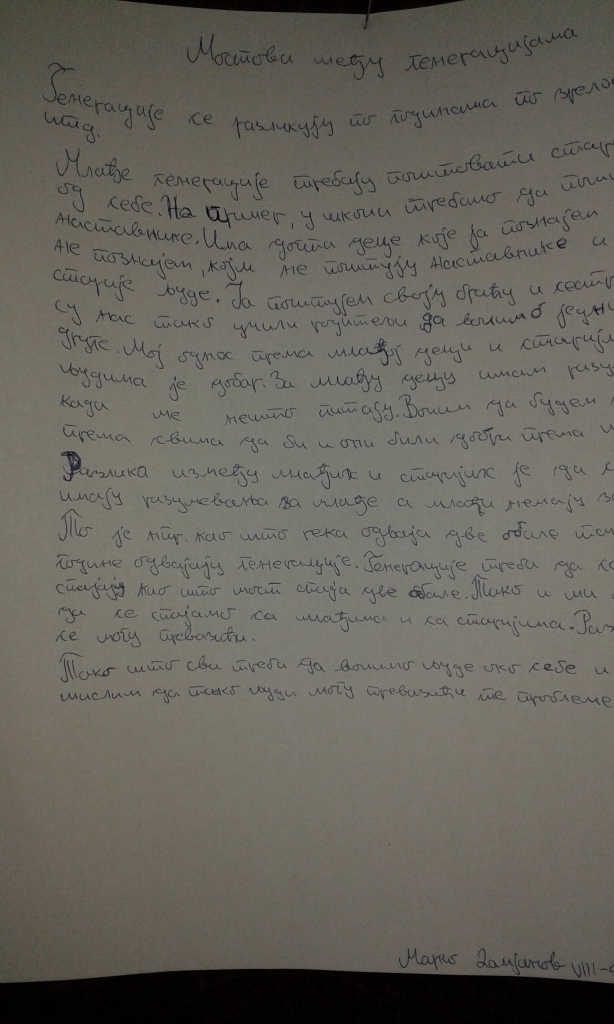 Мостови међу генерацијама
Генерације се разликују по годинама по
итд.
Млађе генерације требају поштовати
од себе. На пример, у школи требамо да
наставнике. Има доста деце које ја познајем
не познајем, који не поштују наставнике и
старије људе. Ја поштујем своју браћу и
су нас тако учили родитељи да волимо једни
друге. Мој однос према млађој деци и
људима је добар. За млађу децу имам
када ме нешто питају. Волим да будем
према свима да би и они били добри према
Разлика између млађих и старијих је да
имају разумевања за млађе а млађи немају
То је нпр. као што река одваја две обале
године одвајају генерације. Генерације треба да
спајају као што мост спаја две обале. Тако и ми
да се спајамо са млађима и са старијима.
се могу превазићи.
Тако што сви треба да волимо људе око себе и
мислим да тако људи могу превазићи те проблеме
Марко VIII-